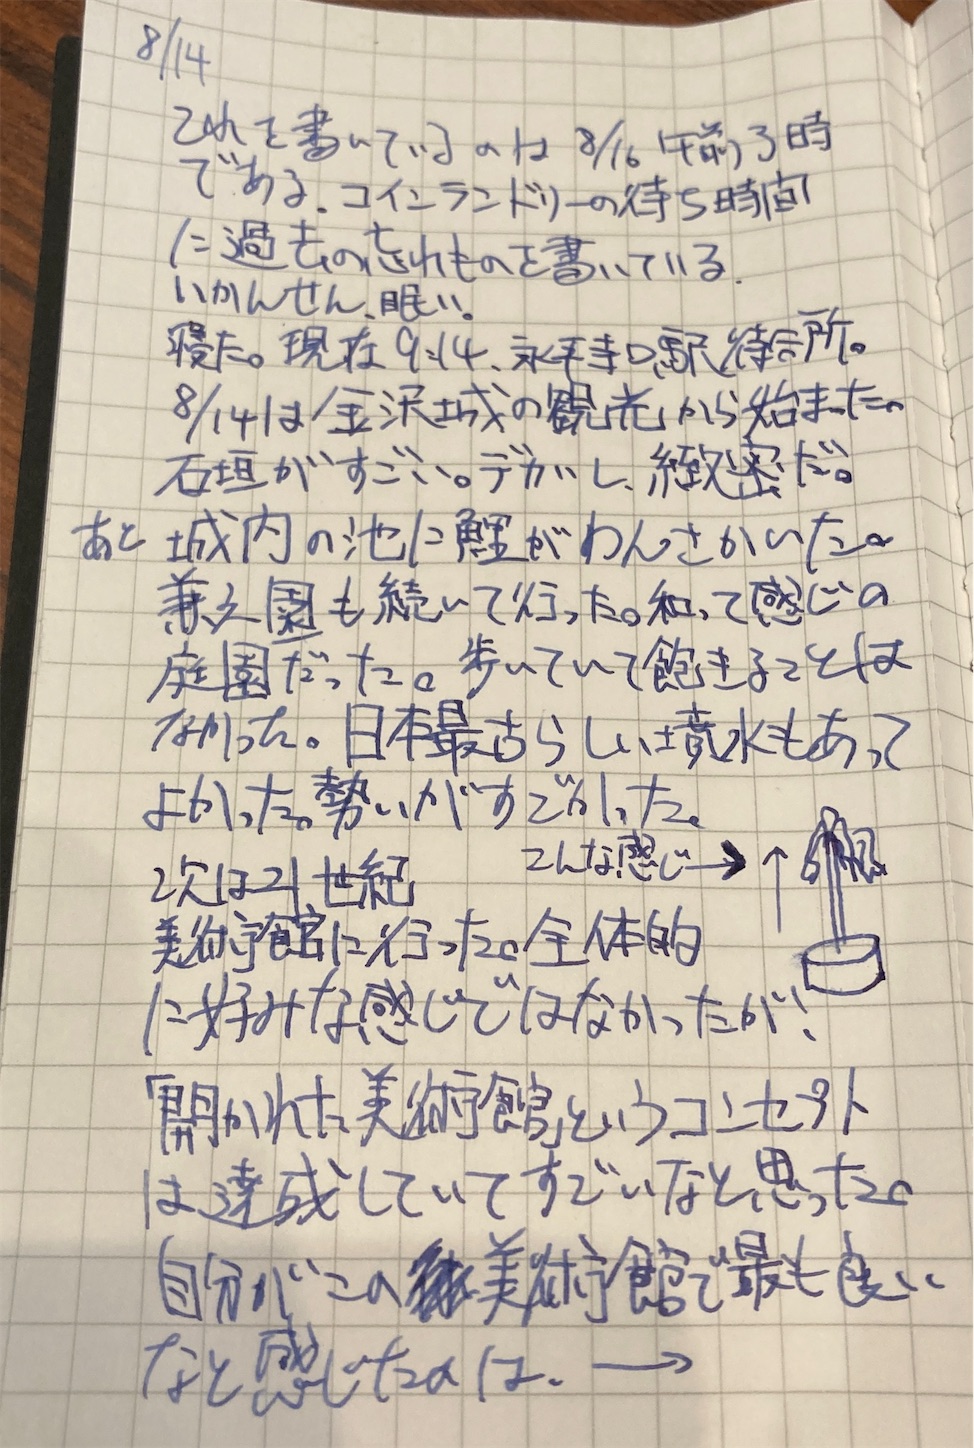 8/14
これを書いているのは 8/16 午前3時
である。コインランドリーの待ち時間
に過去の忘れものを書いている。
いかんせん、眠い。
寝た。現在9:14、永平寺口駅待合所。
8/14は金沢城の観光から始まった。
石垣がすごい。デカいし、緻密だ。
あと 城内の池に鯉がわんさかいた。
兼六園も続いて行った。和って感じの
庭園だった。歩いていて飽きることは
なかった。日本最古らしい噴水もあって
よかった。勢いがすごかった。
こんな感じ→
次は21世紀
美術館に行った。全体的
に好みな感じではなかったが、
「開かれた美術館」というコンセプト
は達成していてすごいなと思った。
自分がこの美術館で最も良い
なと感じたのは、→